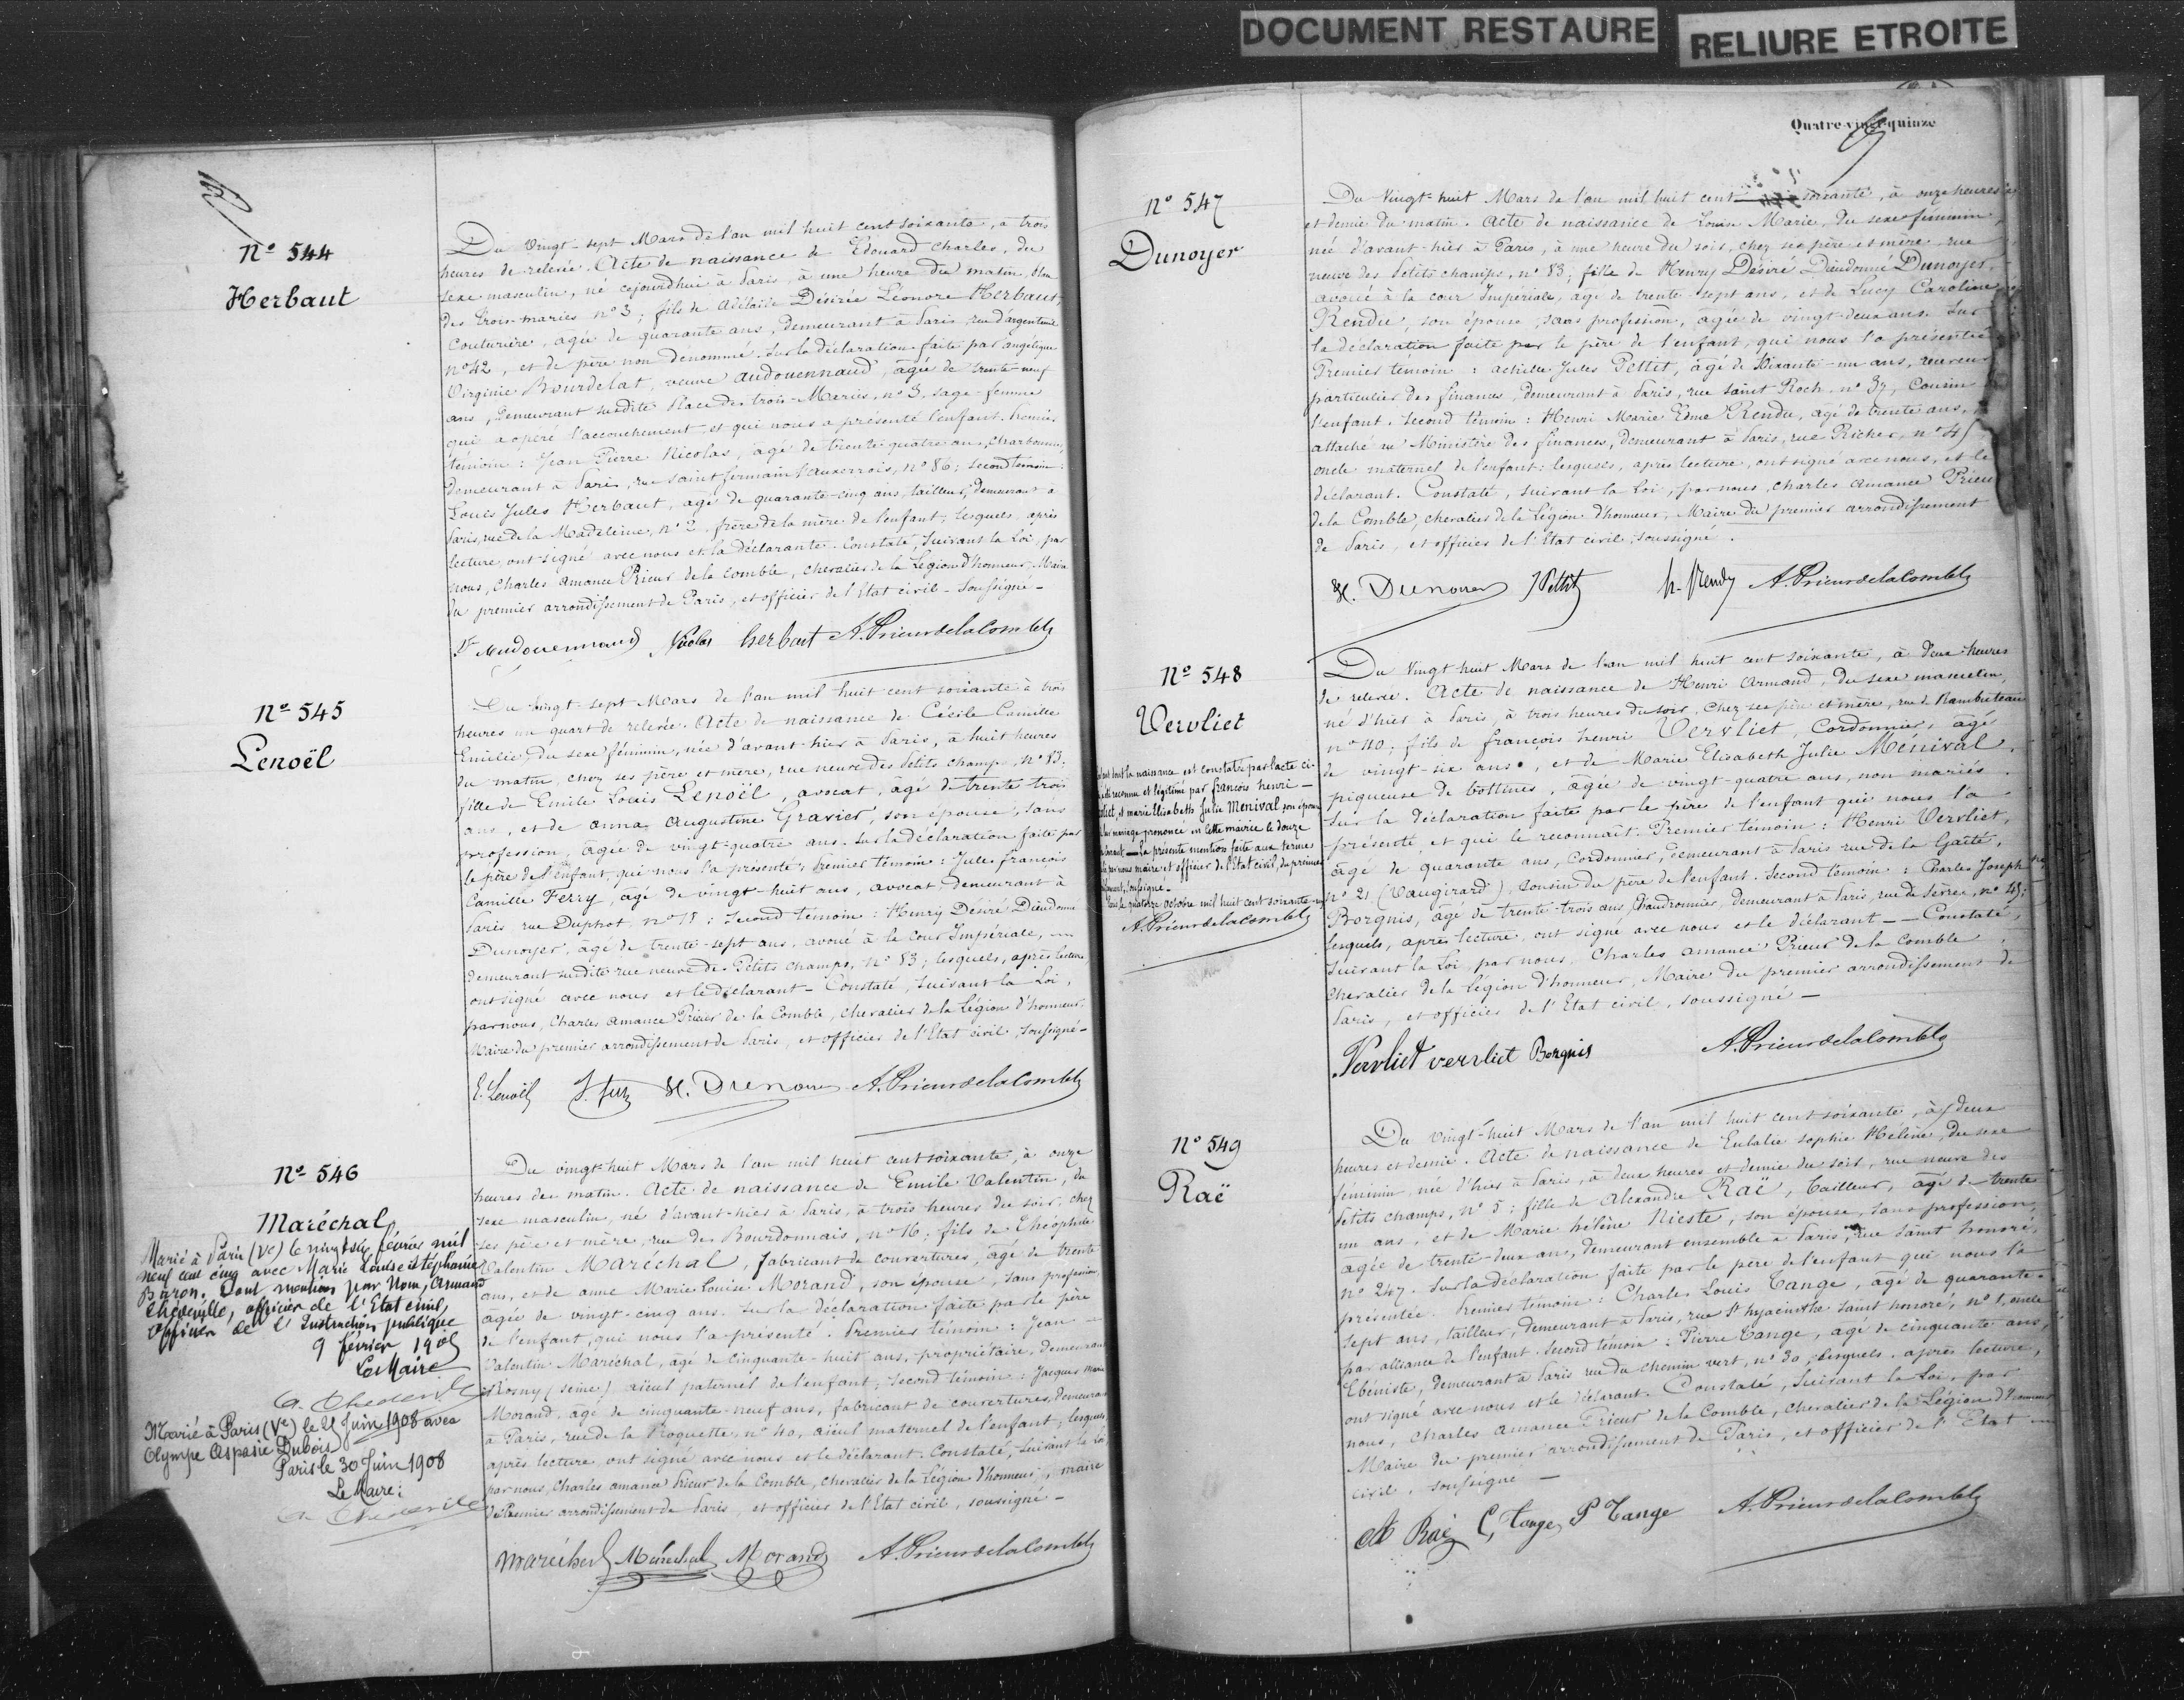 DOCUMENT RESTAURE
RELIURE ETROITE
Nº 544
Herbaut
Du Vingt-sept Mars de l'an mil huit cent soixante, à trois
heures de relevée. Acte de naissance de Edouard Charles, du
sexe masculin, né cejourd'hui à Paris, à une heure du matin,
des trois-maries nº 3; fils de Adélaïde Désirée Léonore Herbaut,
Couturière, agée de quarante ans, demeurant à Paris rue d'argenteuil
nº 42, et de père non dénommé. Sur la déclaration faite par angélique
Virginie Bourdelat, veuve audouennaud, agée de trente-neuf
ans, demeurant susdite Place des trois-Maries, nº 3, sage-femme
qui a opéré l'accouchement et qui nous a présenté l'enfant. Premier
témoin: Jean Pierre Nicolas, âgé de trente quatre ans, Charbonnier,
demeurant à Paris, rue saint germain l'auxerrois, nº 86; second témoin:
Louis Jules Herbaut, agé de quarante-cinq ans, tailleur, demeurant à
Paris, rue de la Madeleine, nº 2, frère de la mère de l'enfant, lesquels, après
lecture, ont signé avec nous et la déclarante. Constaté, suivant la Loi, par
nous, Charles Amance Prieur de la comble, chevalier de la Légion d'honneur, Maire
du premier arrondissement de Paris, et officier de l'Etat civil - Soussigné -
Vve Audouennaud Nicolas herbaut A. Prieur de la Comble
Nº 545
Lenoël
Du vingt-sept Mars de l'an mil huit cent soixante à trois
heures un quart de relevée. Acte de naissance de Cécile Camille
Emilie, du sexe féminin, née d'avant-hier à Paris, à huit heures
du matin, chez ses père et mère, rue neuve des Petits champs, nº 83;
fille de Emile Louis Lenoël, avocat, agé de trente trois
ans, et de anna Augustine Gravier, son épouse, sans
profession, agée de vingt-quatre ans. Sur la déclaration faite par
le père de l'enfant, qui nous l'a présenté; Premier témoin: Jules françois
Camille Ferry, agé de vingt-huit ans, avocat, demeurant à
Paris rue Duphot nº 18; Second témoin: Henry Désiré Dieudonné
Dunoyer, agé de trente-sept ans, avoué à la Cour Impériale,
demeurant susdite rue neuve des Petits champs, nº 83; lesquels, après lecture,
ont signé avec nous et le déclarant - Constaté, suivant la Loi,
par nous, Charles Amance Prieur de la Comble, Chevalier de la Légion d'honneur
Maire du premier arrondissement de Paris, et officier de l'Etat civil soussigné -
E. Lenoël J. Ferry H. Dunoyer A. Prieur de la Comble
Nº 546
Maréchal
Marié à Paris (Ve) le vingt six février mil
neuf cent cinq avec Marie Louise Stéphanie
Biron. Dont mention par Nous, Armand
Chedeville, officier de l'Etat civil,
Officier de l'Instruction publique
9 février 190
Le Maire
A. Chedeville
Marié à Paris (Ve) le 25 Juin 1908 avec
Olympe Aspasie Dubois
Paris le 30 Juin 1908
Le Maire:
A. Chedeville
Du vingt-huit Mars de l'an mil huit cent soixante, à onze
heures du matin. Acte de naissance de Emile Valentin, du
sexe masculin, né d'avant-hier à Paris, à trois heures du soir, chez
ses père et mère, rue des Bourdonnais, nº 16; fils de Théophile
Valentin Maréchal, fabricant de couvertures, agé de trente
ans, et de anne Marie Louise Morand, son épouse, sans profession,
agée de vingt-cinq ans. Sur la déclaration faite par le père
de l'enfant, qui nous l'a présenté. Premier témoin: Jean
Valentin Maréchal, agé de cinquante-huit ans, propriétaire, demeurant
à Rosny (Seine) aïeul paternel de l'enfant; second témoin: Jacques Marie
Morand, agé de cinquante-neuf ans, fabricant de couvertures, demeurant
à Paris, rue de la Roquette, nº 40, aïeul maternel de l'enfant; lesquels,
après lecture ont signé avec nous et le déclarant. Constaté, suivant la Loi
par nous, Charles amance Prieur de la Comble, chevalier de la Légion d'honneur, maire
du Premier arrondissement de Paris, et officier de l'Etat civil, soussigné -
Maréchal Maréchal Morand A. Prieur de la Comble
Quatre-vingt-quinze
Nº 547
Dunoyer
Du Vingt-huit Mars de l'an mil huit cent soixante, à onze heures
et demie du matin. Acte de naissance de Louise Marie, du sexe féminin,
née d'avant-hier à Paris, à une heure du soir, chez ses père et mère rue
neuve des Petits champs, nº 83; fille de Henry Désiré Dieudonné Dunoyer,
avoué à la cour Impériale, agé de trente-sept ans, et de Lucy Caroline
Rendu, son épouse, sans profession, agée de vingt-deux ans. Sur
la déclaration faite par le père de l'enfant, qui nous l'a présentée
Premier témoin: achille Jules Pettit, agé de soixante-un ans, receveur
particulier des finances, demeurant à Paris, rue saint Roch nº 37, Cousin
l'enfant. Second témoin: Henri Marie Edme Rendu, agé de trente ans,
attaché au Ministère des finances, demeurant à Paris, rue Richer, nº 45
oncle maternel de l'enfant: lesquels, après lecture, ont signé avec nous, et le
déclarant. Constaté, suivant la Loi, par nous, Charles Amance Prieur
de la Comble, chevalier de la Légion d'honneur, Maire du premier arrondissement
de Paris, et officier de l'Etat civil, soussigné.
H. Dunoyer J Pettit h. Rendu A. Prieur de la Comble
Nº 548
Vervliet
la naissance est constatée par l'acte ci-
reconnu et légitimé par françois henri
et marie Elisabeth Julie Menival son épouse
mariage prononcé en cette mairie le douze
La présente mention faite aux termes
par nous maire et officier de l'Etat civil, du premier
soussigné -
le quatorze octobre mil huit cent soixante
A. Prieur de la Comble
Du Vingt huit Mars de l'an mil huit cent soixante, à deux heures
de relevée. Acte de naissance de Henri Armand, du sexe masculin,
né d'hier à Paris, à trois heures du soir, chez ses père et mère, rue de Rambuteau
nº 110; fils de françois henri Vervliet, Cordonnier, agé
de vingt-six ans, et de Marie Elisabeth Julie Ménival,
piqueuse de bottines, agée de vingt-quatre ans, non mariés.
Sur la déclaration faite par le père de l'enfant qui nous l'a
présenté et qui le reconnait. Premier témoin: Henri Vervliet,
agé de quarante ans, Cordonnier, demeurant à Paris rue de la Gaîté,
nº 21 (Vaugirard), cousin du père de l'enfant. Second témoin: Charles Joseph
Borgnis, agé de trente-trois ans, Chaudronnier, demeurant à Paris, rue de Sèvres, nº 45;
lesquels, après lecture, ont signé avec nous et le déclarant - Constaté,
suivant la Loi, par nous, Charles amance Prieur de la Comble
Chevalier de la Légion d'honneur, Maire du premier arrondissement de
Paris, et officier de l'Etat civil, soussigné -
Vervliet vervliet Borgnis A. Prieur de la Comble
Nº 549
Raë
Du vingt-huit Mars de l'an mil huit cent soixante, à deux
heures et demie. Acte de naissance de Eulalie Sophie Hélène, du sexe
féminin, née d'hier à Paris, à deux heures et demie du soir, rue neuve des
Petits champs, nº 5; fille de Alexandre Raë, tailleur, agé de trente
un ans, et de Marie hélène Nieste, son épouse, sans profession,
agée de trente-deux ans, demeurant ensemble à Paris, rue saint honoré,
nº 247. Sur la déclaration faite par le père de l'enfant qui nous l'a
présentée. Premier témoin: Charles Louis Tange, agé de quarante-
sept ans, tailleur, demeurant à Paris, rue St hyacinthe saint honoré, nº 1, oncle
par alliance de l'enfant. Second témoin: Pierre Tange, agé de cinquante ans,
Ebéniste, demeurant à Paris rue du chemin vert, nº 30, lesquels, après lecture,
ont signé avec nous et le déclarant. Constaté, suivant la Loi, par
nous, Charles Amance Prieur de la Comble, chevalier de la Légion d'honneur
Maire du premier arrondissement de Paris, et officier de l'Etat
civil, soussigné -
Raë C, Tange P Tange A. Prieur de la Comble